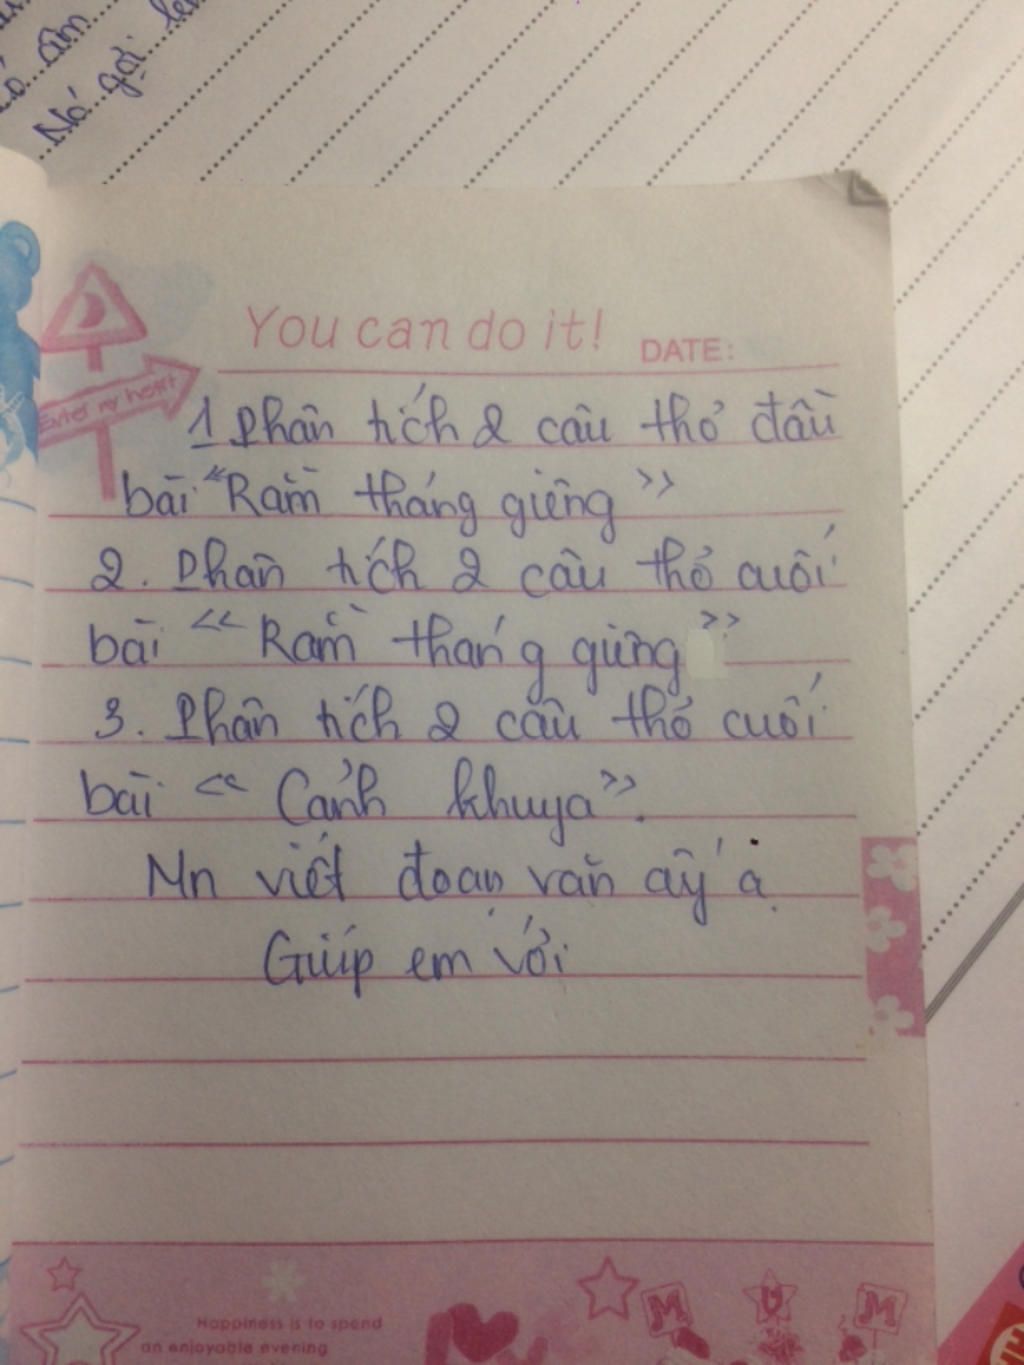 Nó gợi
You can do it!
DATE:
Enter my heart
1 Phân tích 2 câu thơ đầu
bài "Rằm tháng giêng"
2. Phân tích 2 câu thơ cuối
bài "Rằm tháng giêng"
3. Phân tích 2 câu thơ cuối
bài "Cảnh khuya".
Mn viết đoạn văn ấy ạ
Giúp em với
Happiness is to spend
an enjoyable evening
M
M